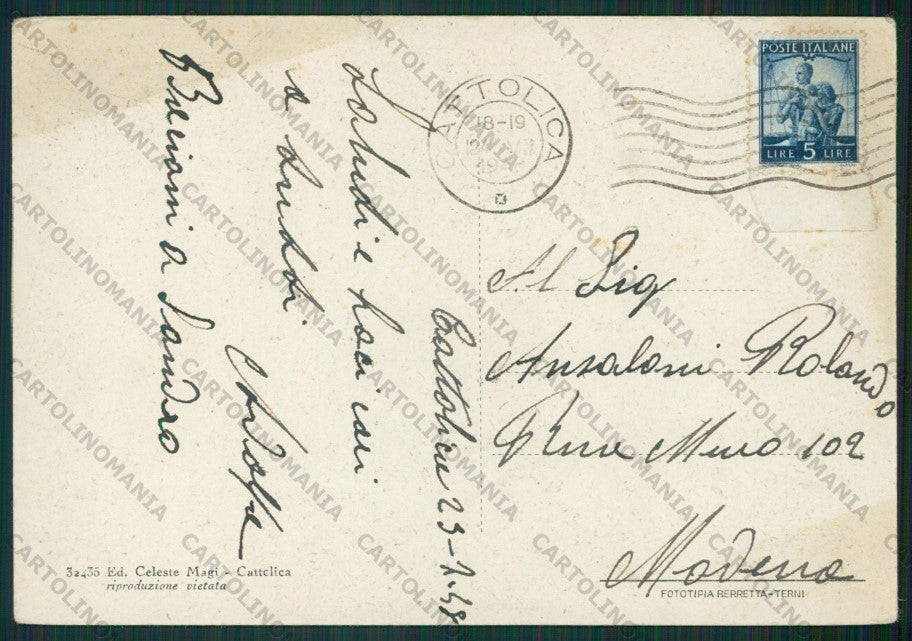 POSTE ITALIANE
LIRE 5 LIRE
CATTOLICA
18-19
Cattolica 23-1.48
Saluti e baci cari
a tutti
Bacioni a Sandro
Al Sig
Ansaloni Rolando
Rua Muro 102
Modena
32435 Ed. Celeste Magi - Cattclica
riproduzione vietata
FOTOTIPIA BERRETTA-TERNI
CARTOLINOMANIA